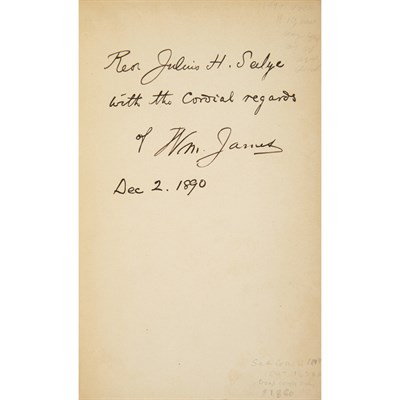 Rev Julius H. Selye
with the Cordial regards
of Wm. James
Dec 2. 1890